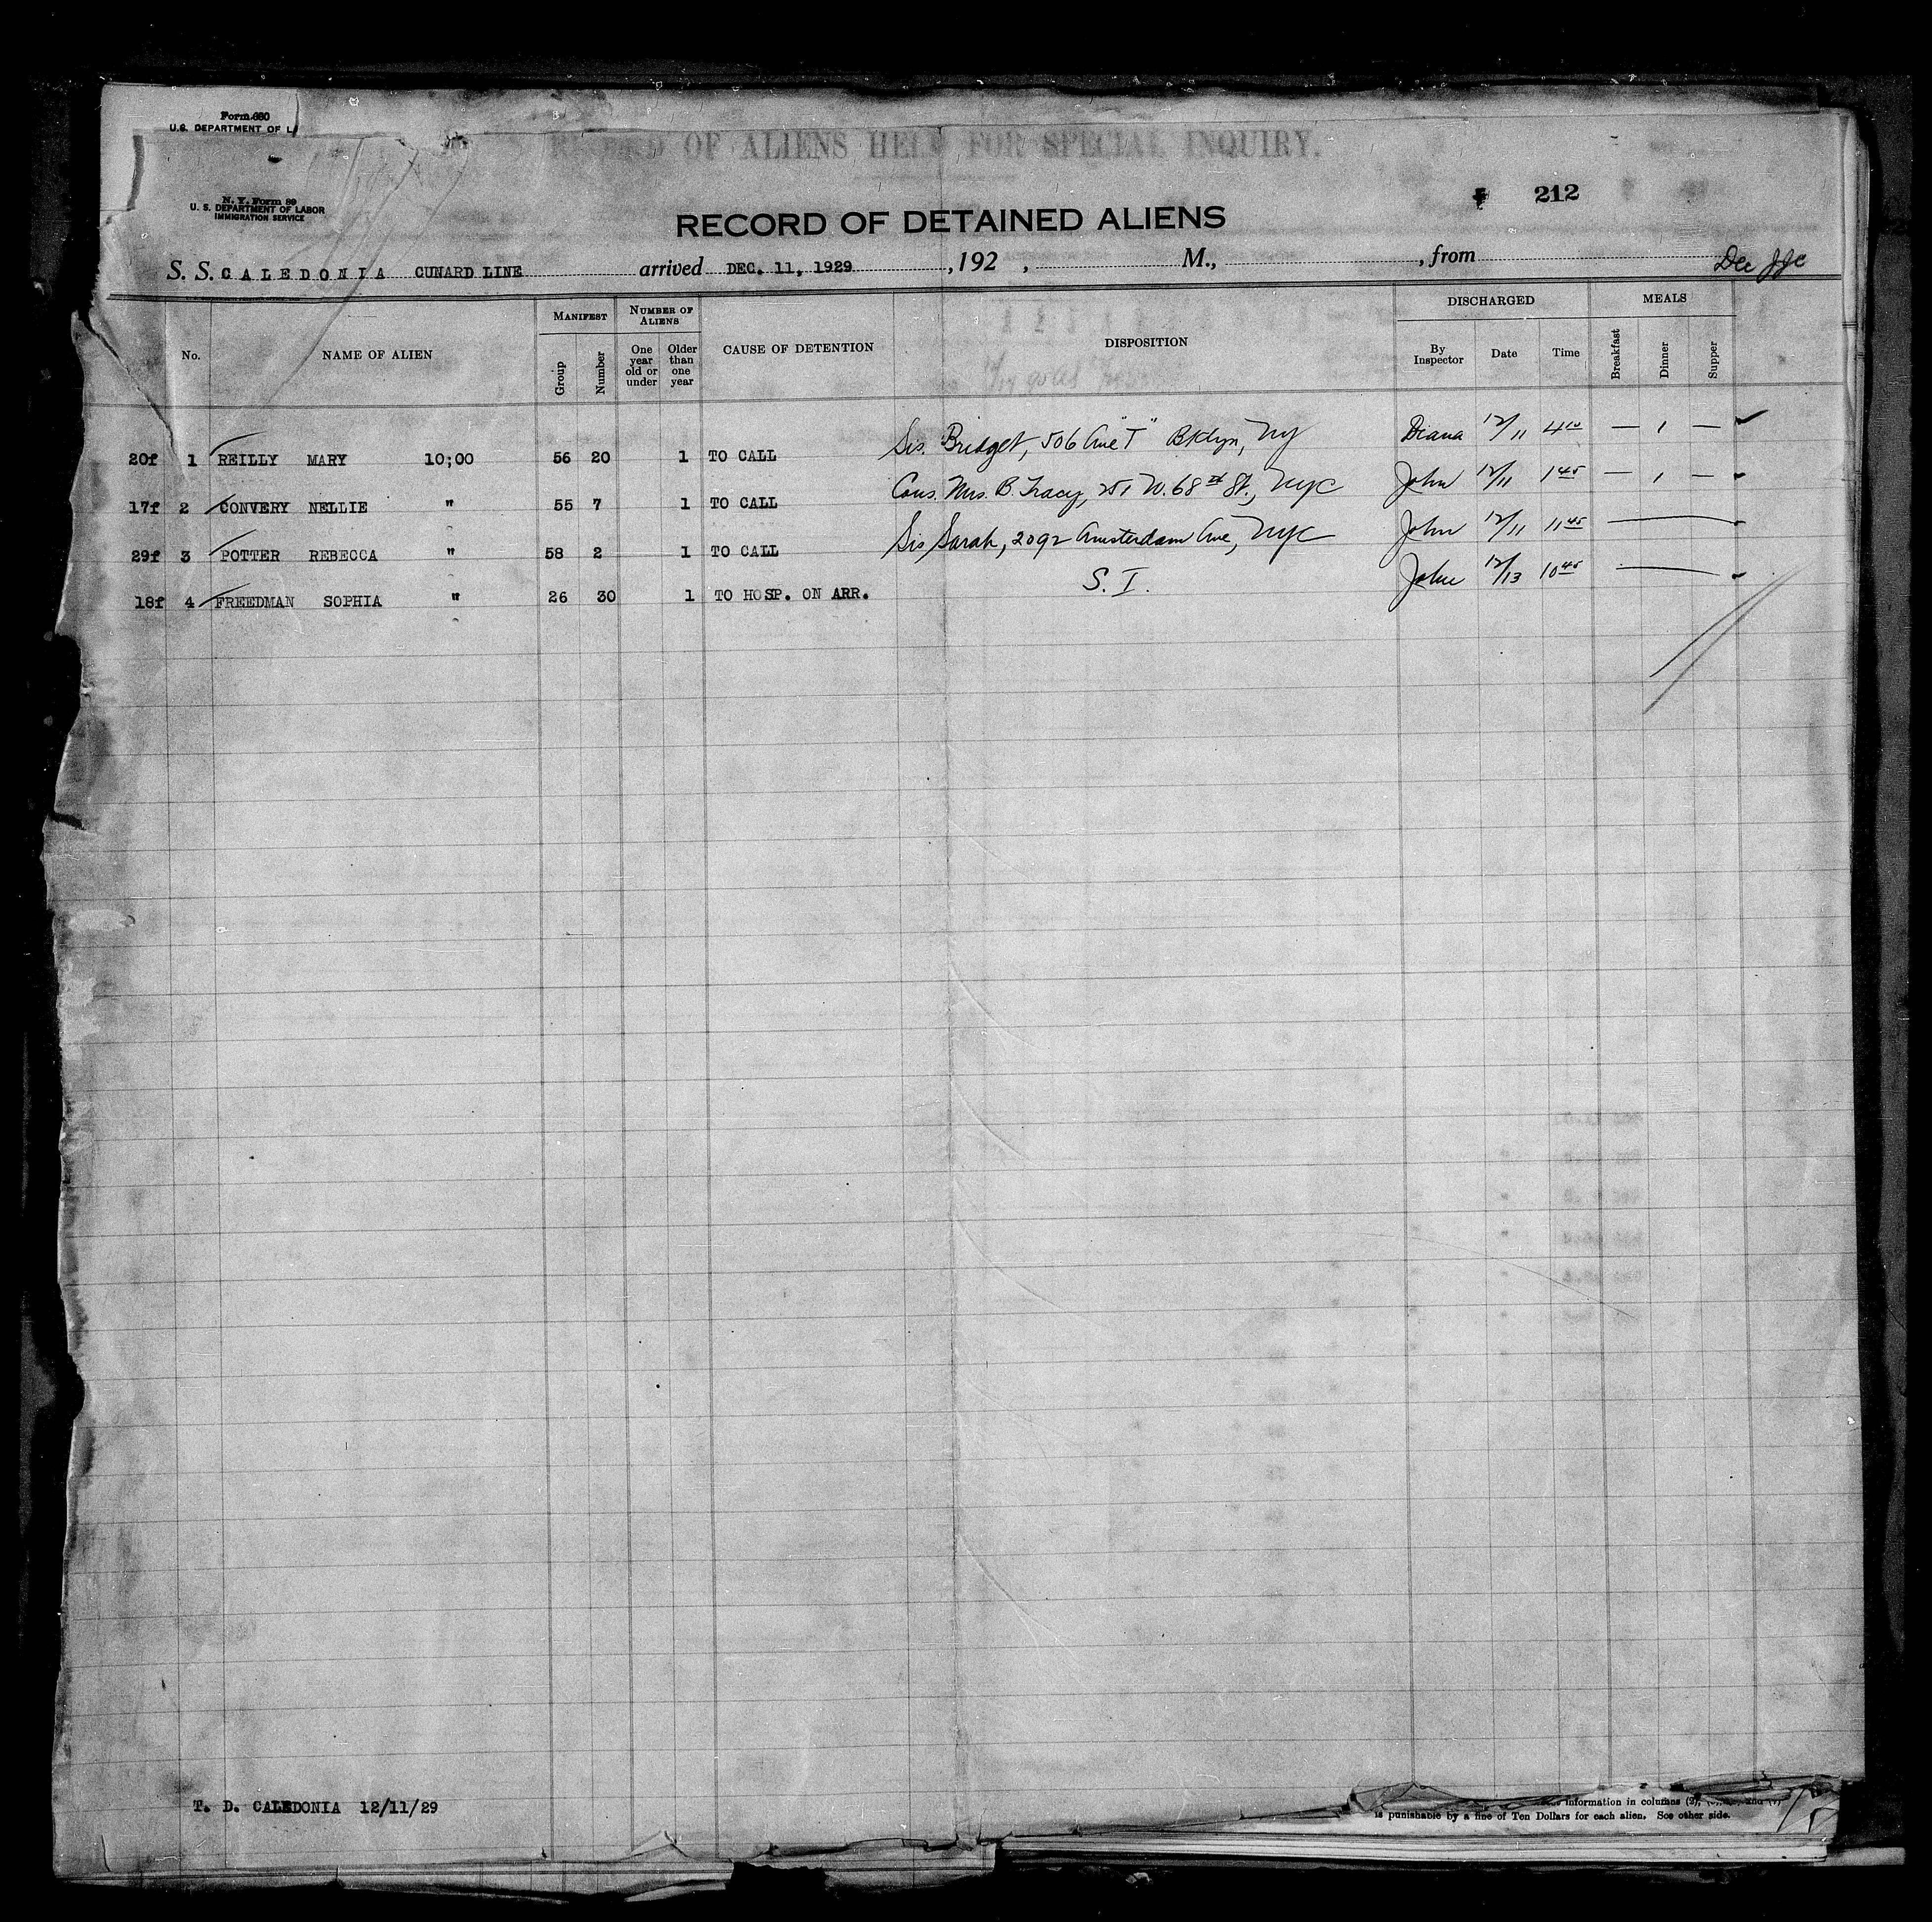 Form 660
U.S. DEPARTMENT OF LA
RECORD OF ALIENS HELD FOR SPECIAL INQUIRY.
N. Y. Form 89
U. S. DEPARTMENT OF LABOR
IMMIGRATION SERVICE
212
RECORD OF DETAINED ALIENS
S. S. CALEDONIA CUNARD LINE arrived DEC. 11, 1929 , 192 , M., , from
DISCHARGED MEALS
MANIFEST NUMBER OF ALIENS
No. NAME OF ALIEN Group Number One year old or under Older than one year CAUSE OF DETENTION DISPOSITION By Inspector Date Time Breakfast Dinner Supper
20f 1 REILLY MARY 10;00 56 20 1 TO CALL Sis. Bridget, 506 Ave "T" Bklyn, NY Diana 12/11 4 10 — 1 —
17f 2 CONVERY NELLIE " 55 7 1 TO CALL Cous. Mrs. B. Tracy, 251 W. 68th St., NYC John 12/11 1 45 — 1 —
29f 3 POTTER REBECCA " 58 2 1 TO CALL Sis Sarah, 2092 Amsterdam Ave, NYC John 12/11 11 45
18f 4 FREEDMAN SOPHIA " 26 30 1 TO HOSP. ON ARR. S. I. John 12/13 10 45
T. D. CALEDONIA 12/11/29
information in columns (2),
is punishable by a fine of Ten Dollars for each alien. See other side.